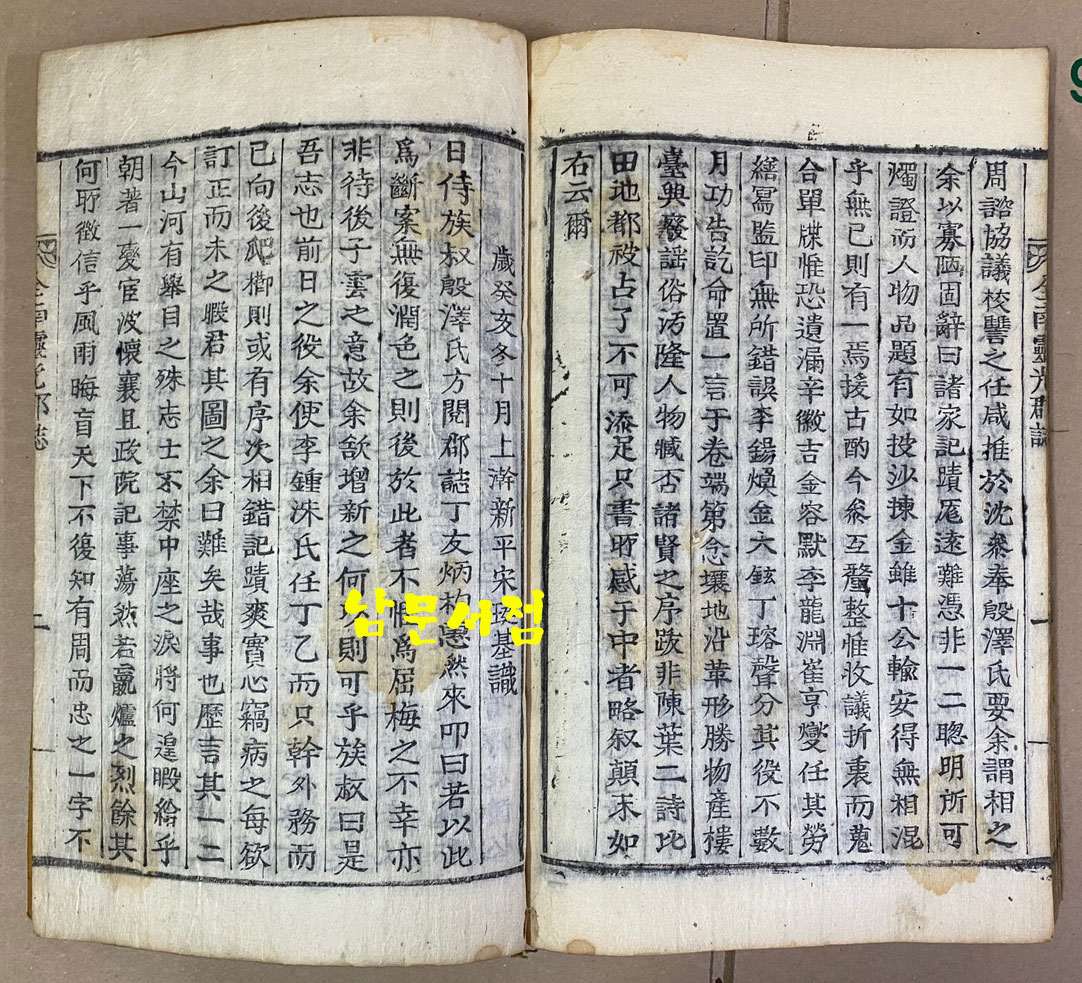 周諮協議校讐之任咸推於沈參奉殷澤氏要余謂相之
余以寡陋固辭曰諸家記蹟厖遠難憑非一二聰明所可
燭證而人物品題有如投沙揀金雖十公輸安得無相混
乎無已則有一焉援古酌今參互釐整惟收議折衷而蒐
合單牒惟恐遺漏辛徽吉金容默李龍淵崔亨燮任其勞
繕寫監印無所錯誤李鍚煥金大鉉丁瑢聲分其役不數
月功告訖命置一言于卷端第念壤地沿革形勝物產樓
臺興廢謠俗汚隆人物臧否諸賢之序跋非陳葉二詩比
田地都被占了不可添足只書所感于中者略叙顛末如
右云爾
全南靈光郡誌
一
歲癸亥冬十月上澣新平宋 基識
日侍族叔殷澤氏方閱郡誌丁友炳 然來叩曰若以此
爲斷案無復潤色之則後於此者不 爲屈梅之不幸亦
非待後子雲之意故余欲增新之何 則可乎族叔曰是
吾志也前日之役余使李鍾洙氏任丁乙而只幹外務而
已向後爬櫛則或有序次相錯記蹟爽實心竊病之每欲
訂正而未之暇君其圖之余曰難矣哉事也歷言其一二
今山河有擧目之殊志士不禁中座之淚將何遑暇給乎
朝著一變宦波懷襄且政院記事蕩然若嬴爐之烈餘其
何所徵信乎風雨晦盲天下不復知有周而忠之一字不
全南靈光郡誌
二
남문서점